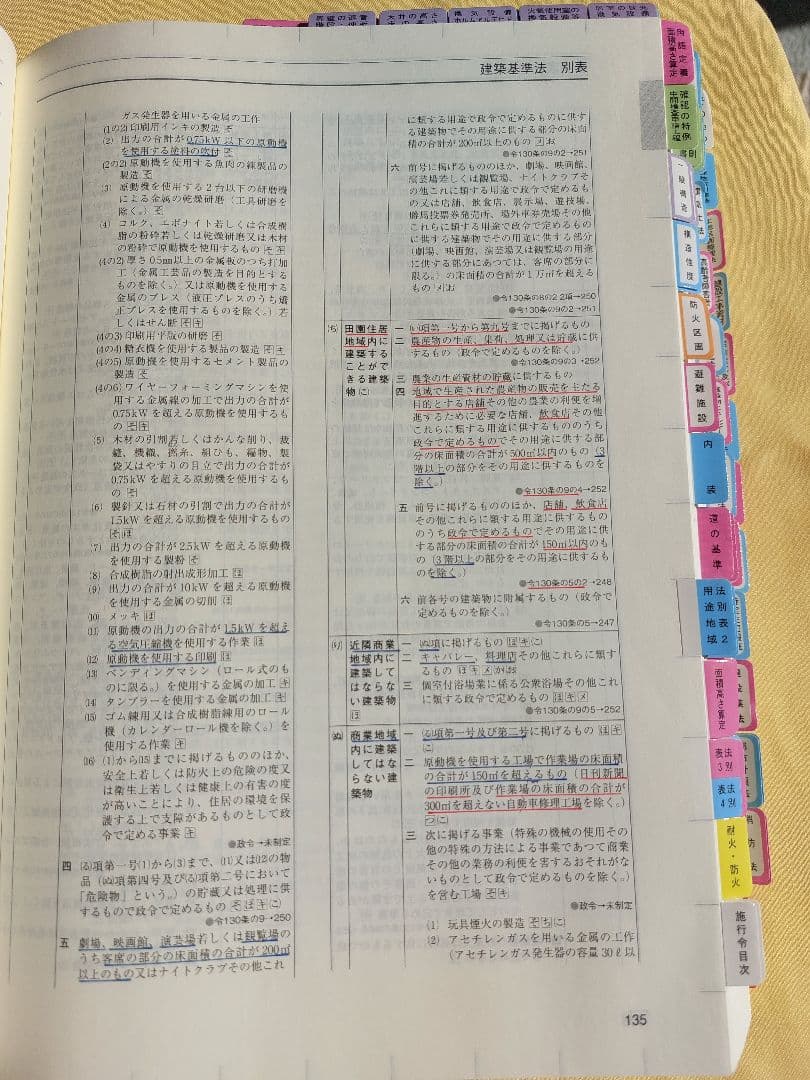 建築基準法 別表
ガス発生器を用いる金属の工作
(1の2) 印刷用インキの製造
(2) 出力の合計が0.75kW以下の原動機
を使用する塗料の吹付
(2の2) 原動機を使用する魚肉の練製品の
製造
(3) 原動機を使用する2台以下の研磨機
による金属の乾燥研磨(工具研磨
を除く。)
(4) コルク、エボナイト若しくは合成樹
脂の粉砕若しくは乾燥研磨又は木材
の粉砕で原動機を使用するもの
(4の2) 厚さ0.5mm以上の金属板のつち打加
工(金属工芸品の製造を目的とする
ものを除く。)又は原動機を使用する
金属のプレス(液圧プレスのうち矯
正プレスを使用するものを除く。)若
しくはせん断
(4の3) 印刷用平版の研磨
(4の4) 糖衣機を使用する製品の製造
(4の5) 原動機を使用するセメント製品の
製造
(4の6) ワイヤーフォーミングマシンを使
用する金属線の加工で出力の合計が
0.75kWを超える原動機を使用するも
の
(5) 木材の引割若しくはかんな削り、裁
縫、機織、撚糸、組ひも、編物、製
袋又はやすりの目立で出力の合計が
0.75kWを超える原動機を使用するも
の
(6) 製針又は石材の引割で出力の合計が
1.5kWを超える原動機を使用するもの
(7) 出力の合計が2.5kWを超える原動機
を使用する製粉
(8) 合成樹脂の射出成形加工
(9) 出力の合計が10kWを超える原動機
を使用する金属の切削
(10) メッキ
(11) 原動機の出力の合計が1.5kWを超え
る空気圧縮機を使用する作業
(12) 原動機を使用する印刷
(13) ベンディングマシン(ロール式のも
のに限る。)を使用する金属の加工
(14) タンブラーを使用する金属の加工
(15) ゴム練用又は合成樹脂練用のロール
機(カレンダーロール機を除く。)を
使用する作業
(16) (1)から(15)までに掲げるもののほか、
安全上若しくは防火上の危険の度又
は衛生上若しくは健康上の有害の度
が高いことにより、住居の環境を保
護する上で支障があるものとして政
令で定める事業
●政令→未制定
四 (る)項第一号(1)から(3)まで、(11)又は(12)の物
品((ぬ)項第四号及び(る)項第二号において
「危険物」という。)の貯蔵又は処理に供
するもので政令で定めるもの
●令130条の9→250
五 劇場、映画館、演芸場若しくは観覧場の
うち客席の部分の床面積の合計が200㎡
以上のもの又はナイトクラブその他これ
に類する用途で政令で定めるものに供す
る建築物でその用途に供する部分の床面
積の合計が200㎡以上のもの
●令130条の9の2→251
六 前号に掲げるもののほか、劇場、映画館、
演芸場若しくは観覧場、ナイトクラブそ
の他これに類する用途で政令で定めるも
の又は店舗、飲食店、展示場、遊技場、
勝馬投票券発売所、場外車券売場その他
これらに類する用途で政令で定めるもの
に供する建築物でその用途に供する部分
(劇場、映画館、演芸場又は観覧場の用途
に供する部分にあつては、客席の部分に
限る。)の床面積の合計が1万㎡を超える
もの
●令130条の8の2 2項→250
●令130条の9の2→251
(ち) 田園住居
地域内に
建築する
ことがで
きる建築
物
一 (い)項第一号から第九号までに掲げるもの
二 農産物の生産、集荷、処理又は貯蔵に供
するもの(政令で定めるものを除く。)
●令130条の9の3→252
三 農業の生産資材の貯蔵に供するもの
四 地域で生産された農産物の販売を主たる
目的とする店舗その他の農業の利便を増
進するために必要な店舗、飲食店その他
これらに類する用途に供するもののうち
政令で定めるものでその用途に供する部
分の床面積の合計が500㎡以内のもの(3
階以上の部分をその用途に供するものを
除く。)
●令130条の9の4→252
五 前号に掲げるもののほか、店舗、飲食店
その他これらに類する用途に供するもの
のうち政令で定めるものでその用途に供
する部分の床面積の合計が150㎡以内のも
の(3階以上の部分をその用途に供するも
のを除く。)
●令130条の5の2→248
六 前各号の建築物に附属するもの(政令で
定めるものを除く。)
●令130条の5→247
(り) 近隣商業
地域内に
建築して
はならな
い建築物
一 (ぬ)項に掲げるもの
二 キャバレー、料理店その他これらに類す
るもの
三 個室付浴場業に係る公衆浴場その他これ
に類する政令で定めるもの
●令130条の9の5→252
(ぬ) 商業地域
内に建築
してはな
らない建
築物
一 (る)項第一号及び第二号に掲げるもの
二 原動機を使用する工場で作業場の床面積
の合計が150㎡を超えるもの(日刊新聞
の印刷所及び作業場の床面積の合計が
300㎡を超えない自動車修理工場を除く。)
三 次に掲げる事業(特殊の機械の使用その
他の特殊の方法による事業であつて商業
その他の業務の利便を害するおそれがな
いものとして政令で定めるものを除く。)
を営む工場
●政令→未制定
(1) 玩具煙火の製造
(2) アセチレンガスを用いる金属の工作
(アセチレンガス発生器の容量30ℓ以
135
用語定義
面積高さ算定
確認の特例
一般構造
構造強度
防火区画
避難施設
内装
道の基準
法別表2
用途地域
面積高さ算定
法別表3
法別表4
耐火・防火
施行令目次